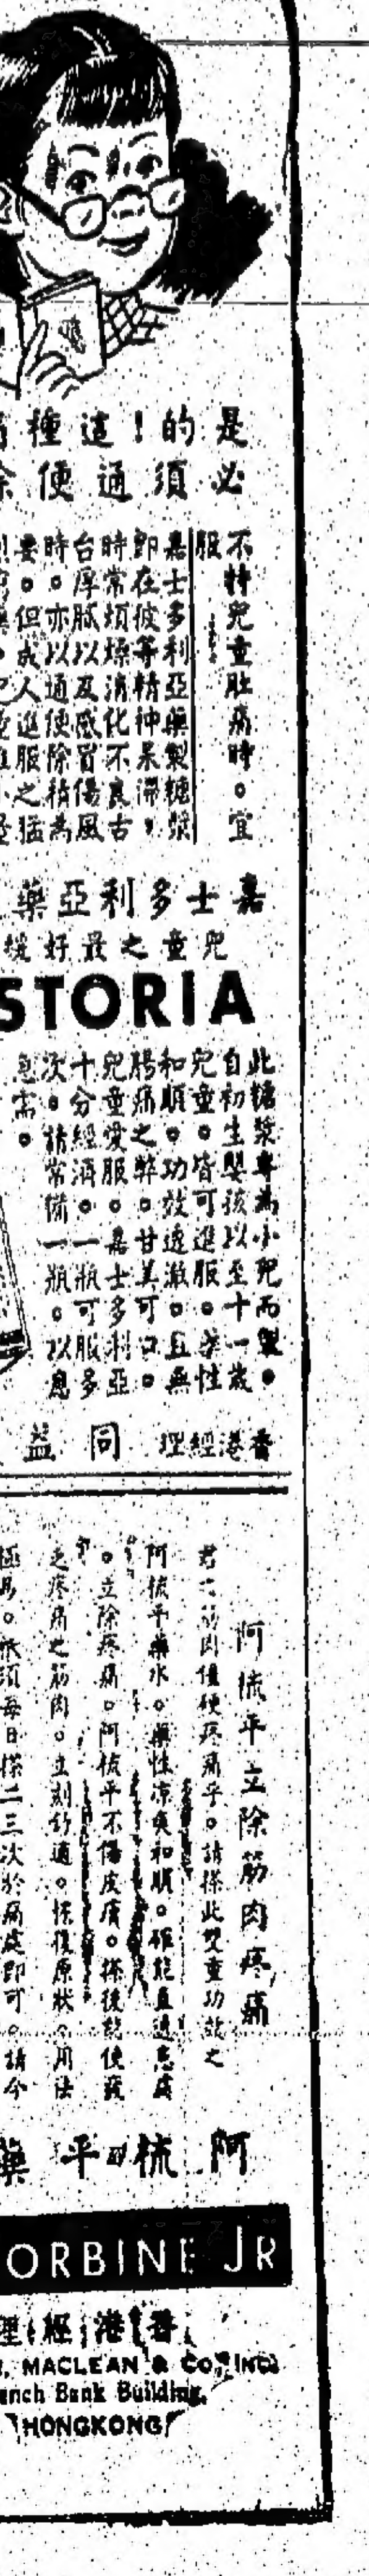 是的！這種
必須通便
不特兒童肚痛時。宜
服
嘉士多利亞藥製糖漿
即在彼等精神呆滯，
時常煩燥消化不良舌
台厚膩以及感冒傷風
時。亦以通便除積為
要。但成人進服之猛
嘉士多利亞藥
兒童之最好
STORIA
此糖漿專為小兒而製。
自初生嬰孩以至十一歲
兒童。皆可進服。藥性
和順。功效透澈。且無
腸痛之弊。甘美可口。
兒童愛服。嘉士多利亞
十分經濟。一瓶可服多
次。請常備一瓶。以應
急需。
香港經理 同益
阿梳平立除筋肉疼痛
君之筋肉僵硬疼痛乎。請搽此雙重功效之
阿梳平藥水。藥性涼爽和順。確能直透患處
。立除疼痛。阿梳平不傷皮膚。搽後能使
之疼痛之筋肉。立刻舒適。恢復原狀。用法
極易。祇須每日搽二三次於痛處即可。請今
阿梳平藥
ORBINE JR
香港經理
MACLEAN & CO., INC.
ench Bank Building,
HONGKONG